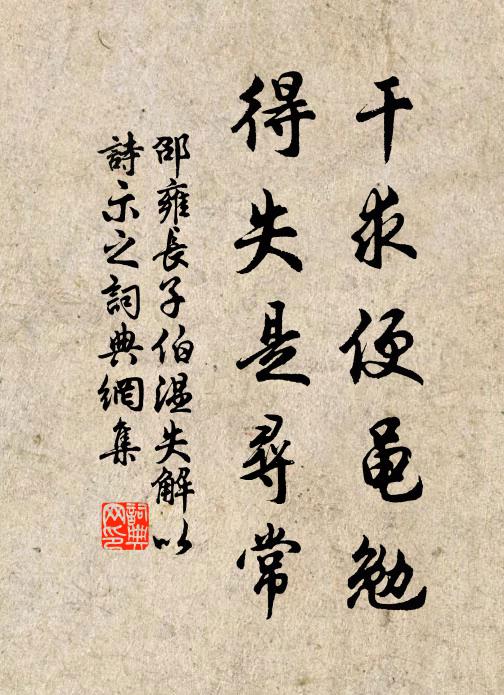 干求便黽勉
得失是尋常
邵雍長子伯溫失解以
詩示之詞典網集
詞典
网印